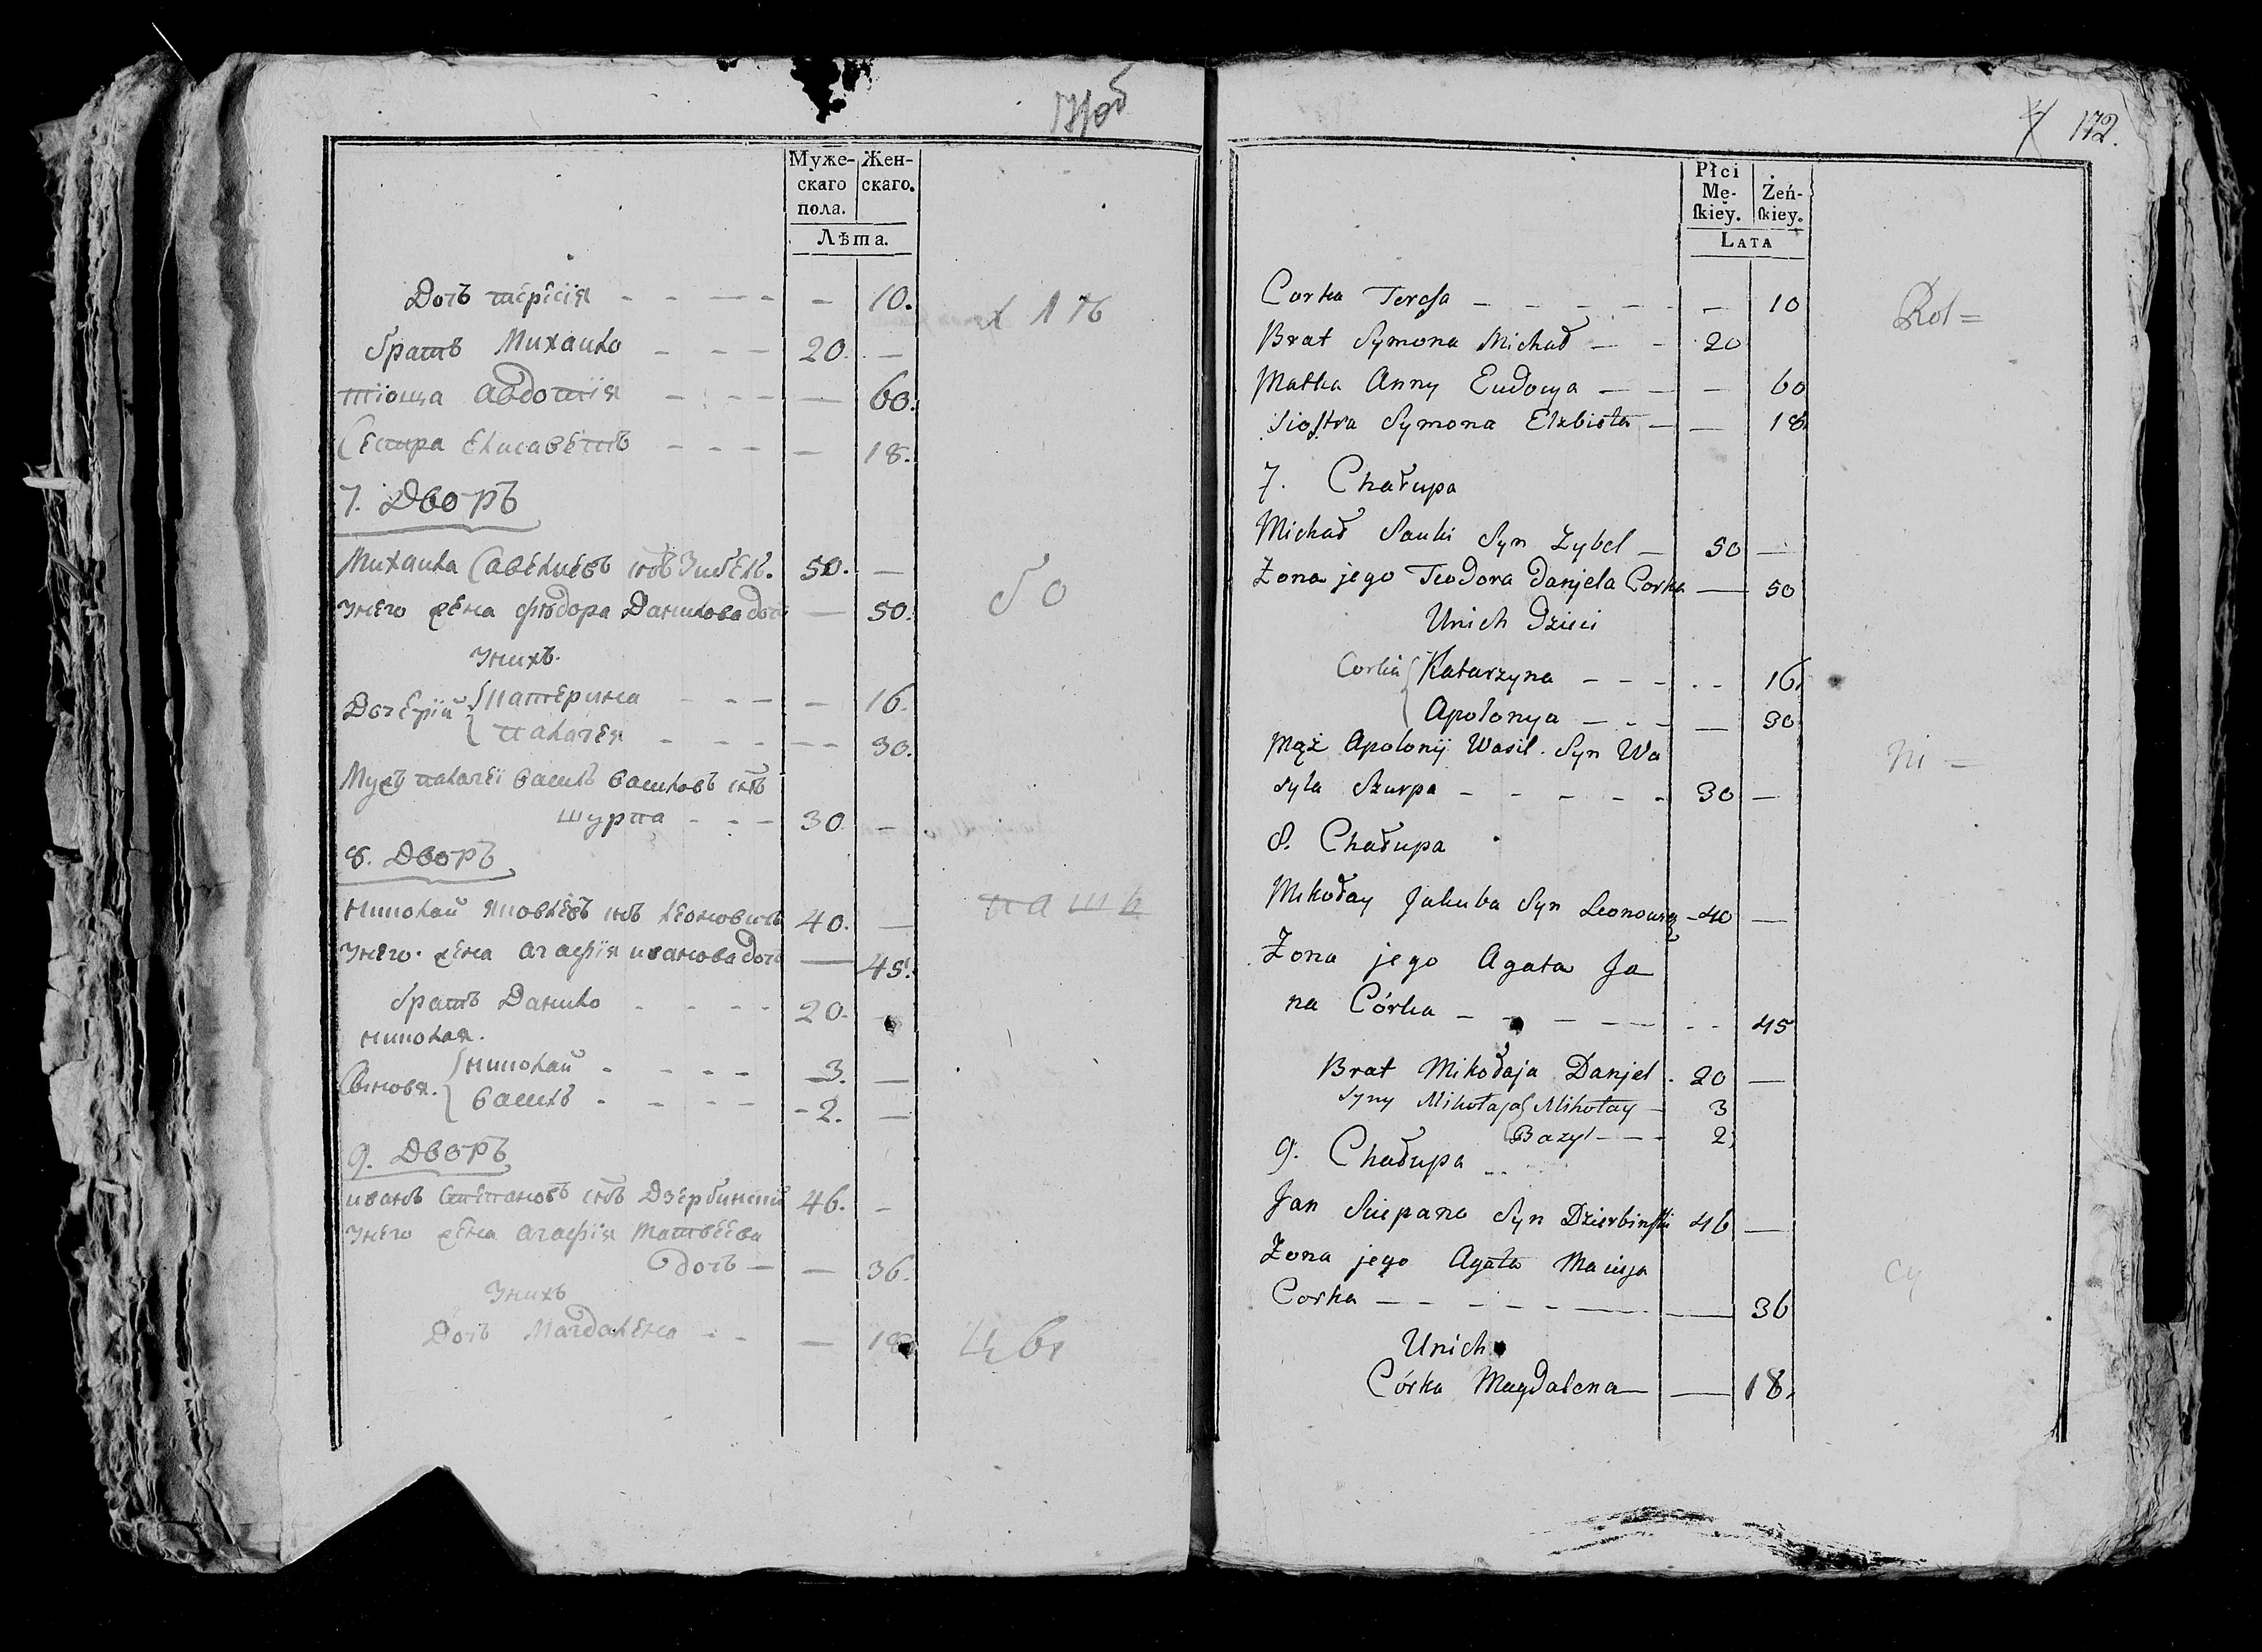 Муже-
скаго
пола.
Жен-
скаго.
Лѣта.
Дочь тересія - - - - - 10.
братъ Михаило - - - 20. -
тіоща Авдотія - - - - 60.
Сестра Елисаветъ - - - - 18.
7. Дворъ
Михаила Савельевъ снъ Зибель. 50. -
Унего жена фѣдора Данилова дочь - 50.
Унихъ.
Дочерїи { катерина - - - - 16.
палагея - - - - 30.
Мужъ палагеї василь васильовъ снъ
шурпа - - - 30. -
8. Дворъ
николай яковлевъ снъ леоновичъ 40. -
Унего жена агафія иванова дочь - 45.
братъ Данило - - - - 20. -
николая.
Сыновя. { николай - - - - 3. -
василь - - - - 2. -
9. Дворъ
иванъ степановъ снъ Дзербинский 46. -
Унего жена агафія матвеева
дочь - - 36.
Унихъ
Дочь Магдалена - - - 18
бо
пашь
172.
Płci
Mę-
ſkiey.
Żeń-
ſkiey.
Lata
Corka Teresa - - - - - - 10
Brat Symona Michał - - 20
Matka Anny Eudocya - - - 60
Siostra Symona Elzbieta - - 18
7. Chałupa
Michał Sauki Syn Zybel - 50 -
Zona jego Teodora Danjela Corka - 50
Unich Dzieci
Corki { Katarzyna - - - - - 16.
Apolonya - - - - 30
Mąż Apolonij Wasil. Syn Wa
syla Szurpa - - - - - 30 -
8. Chałupa
Mikołay Jakuba Syn Leonowicz - 40 -
Żona jego Agata Ja
na Córka - - - - - - - 45
Brat Mikołaja Danjel. 20 -
Syny Mikołaja { Mikołay - 3
Bazyl - - - 2
9. Chałupa
Jan Sciepana Syn Dzierbinski 46 -
Żona jego Agata Macieja
Corka - - - - - - - - 36
Unich
Córka Magdalena - - 18.
Rol=
ni -
cy